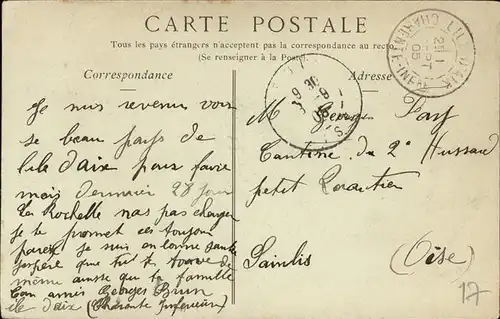 CARTE POSTALE
Tous les pays étrangers n'acceptent pas la correspondance au recto
(Se renseigner à la Poste)
Correspondance
Adresse
Je suis revenu voir
se beau pays de
l'ile d'aix pour faire
mes dernier 28 jour
La Rochelle nas pas changer
je te promet ces toujour
pareil je suis en bonne sante
j'espere que toit tu trouve de
même ainsse que ta famille
Ton amis Georges Brun
ile daix (Charante Inferieur)
M Georges Pay
Cantine du 2e Hussard
petit Quartier
Sainlis (Oise)
9 30
3 -9
05
17